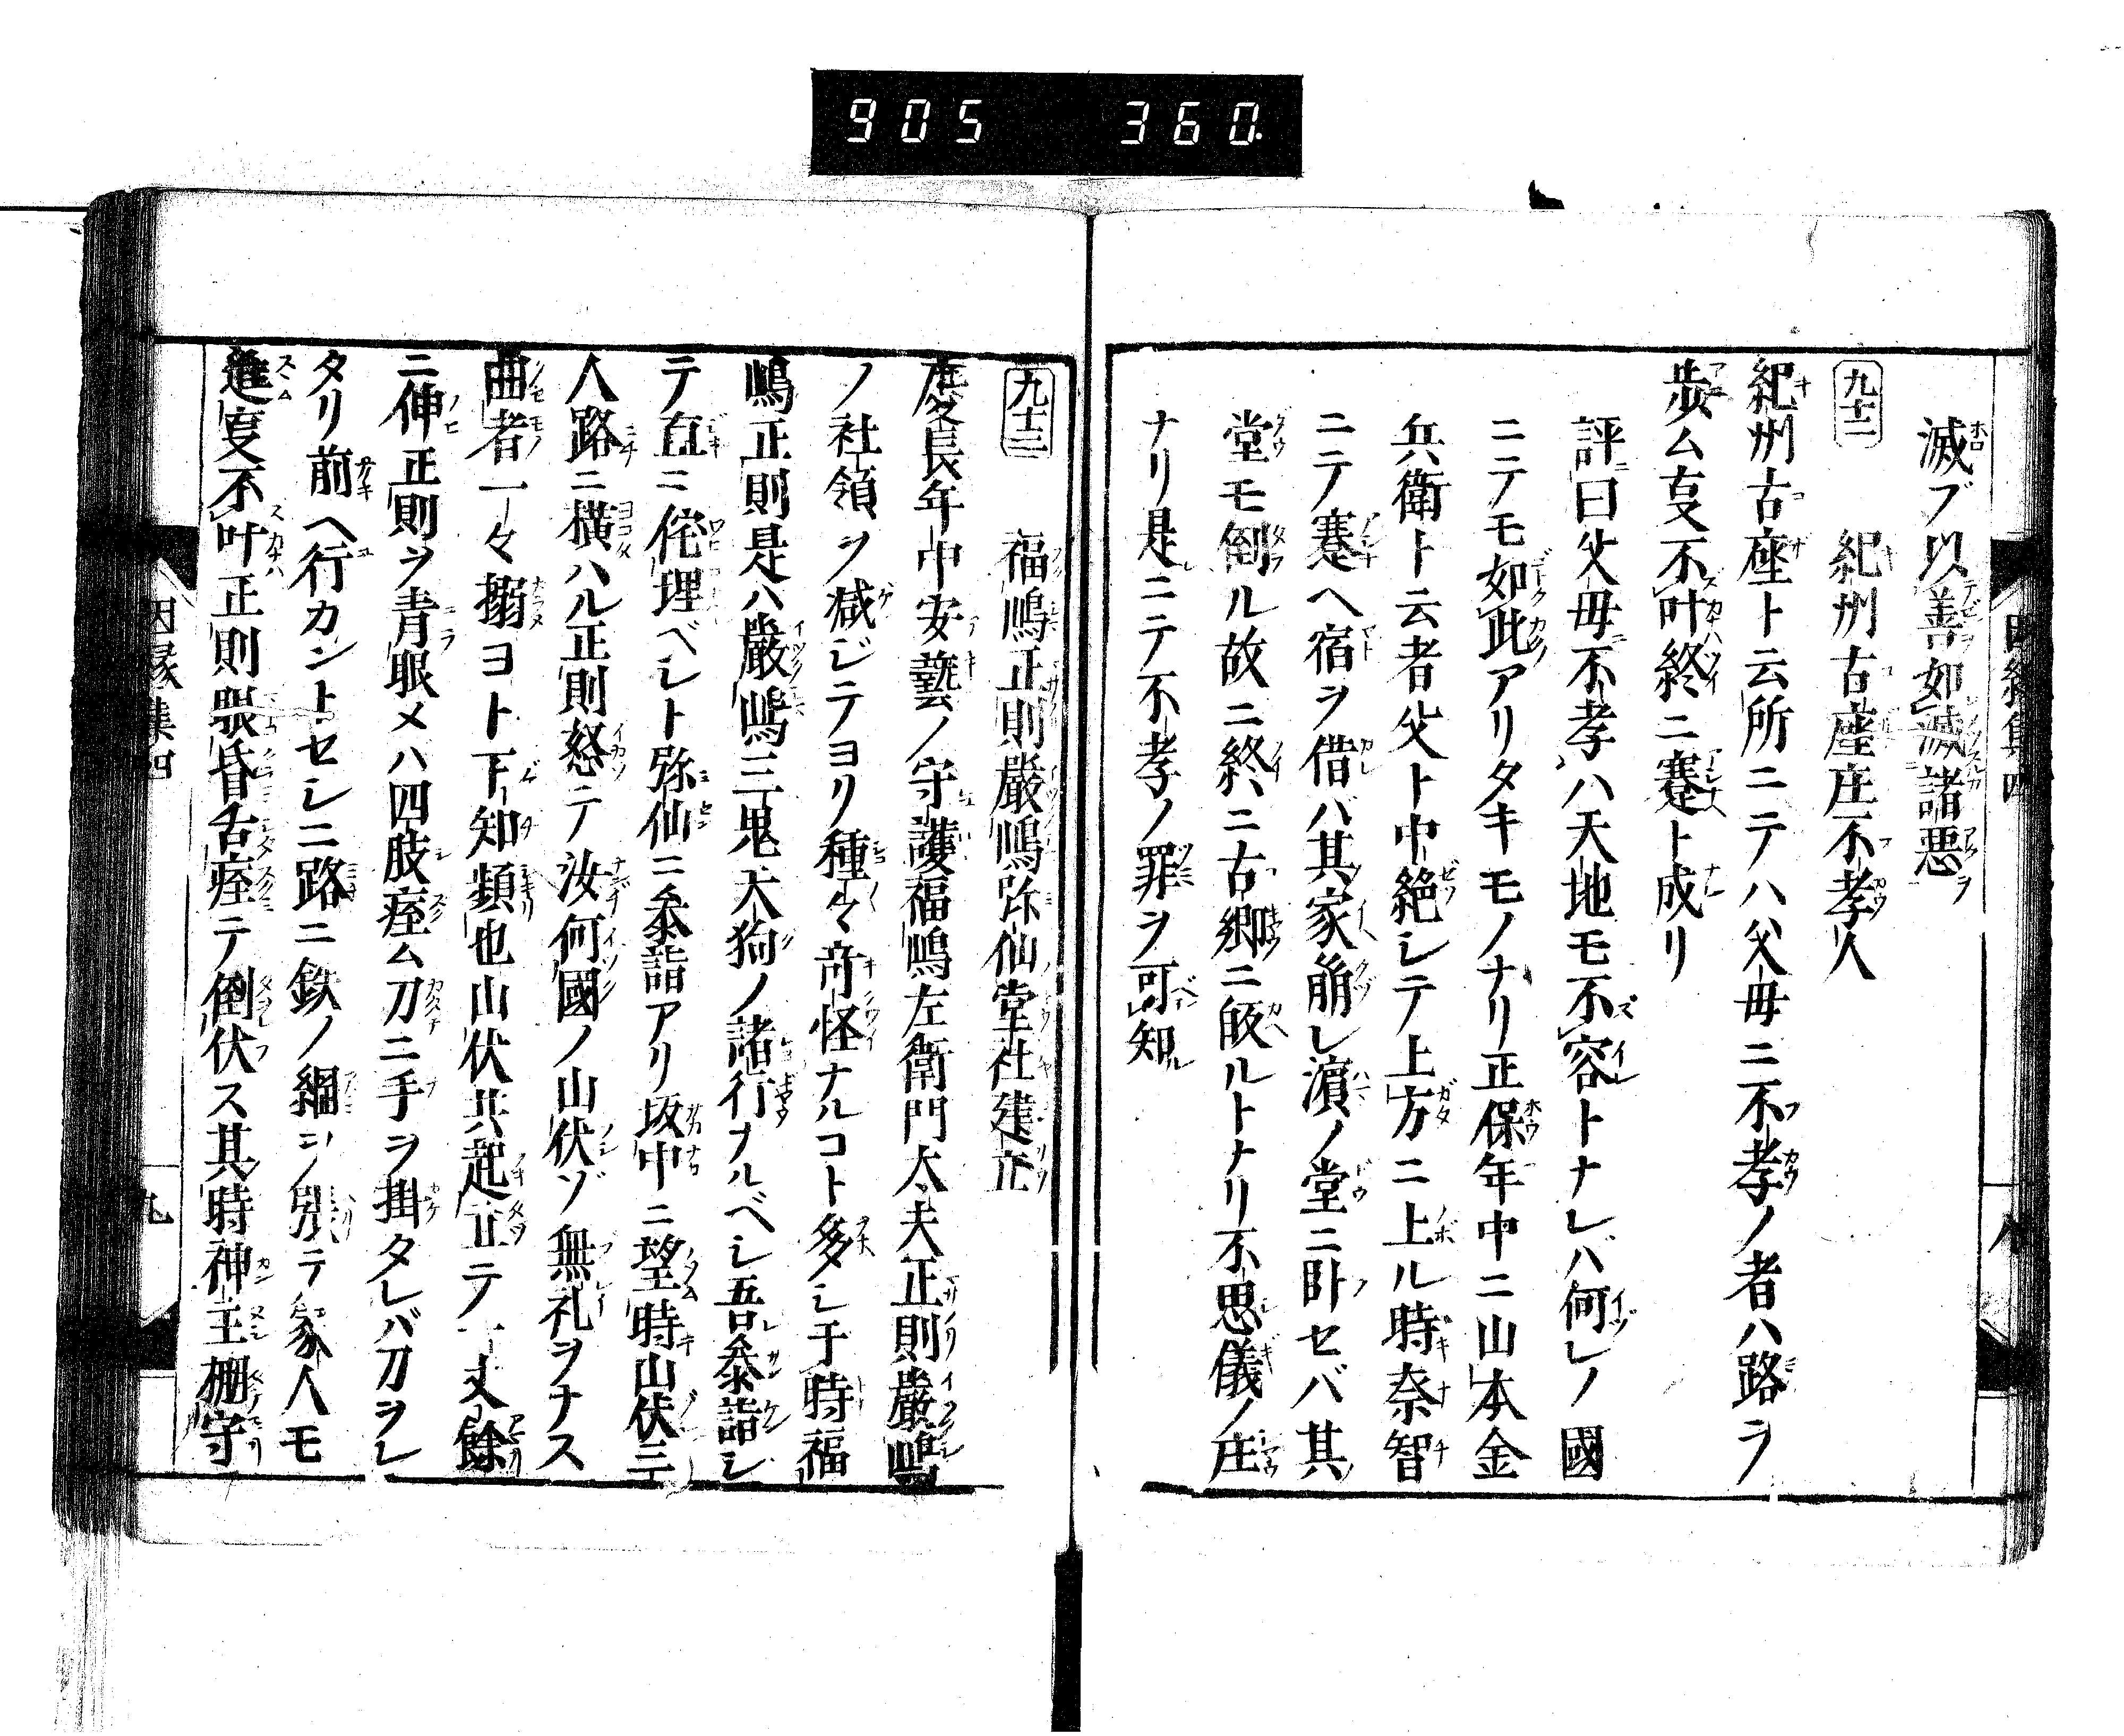 905 360
因縁集四
八
滅ブ以善如滅諸悪
九十二 紀州古座庄不孝人
紀州古座ト云所ニテハ父母ニ不孝ノ者ハ路ヲ
歩ム叓不叶終ニ蹇ト成リ
評曰父母不孝ハ天地モ不容トナレバ何レノ國
ニテモ如此アリタキモノナリ正保年中ニ山本金
兵衛ト云者父ト中絶シテ上方ニ上ル時奈智
ニテ蹇ヘ宿ヲ借バ其家崩レ濵ノ堂ニ卧セバ其
堂モ倒ル故ニ終ニ古郷ニ皈ルトナリ不思儀ノ庄
ナリ是ニテ不孝ノ罪ヲ可知
九十三 福嶋正則嚴嶋弥仙堂社建立
慶長年中安藝ノ守護福嶋左衛門太夫正則嚴嶋
ノ社領ヲ减ジテヨリ種々竒怪ナルコト多シ于時福
嶋正則是ハ嚴嶋三鬼大狗ノ諸行ナルベシ吾叅詣シ
テ直ニ侘理ベシト弥仙ニ叅詣アリ坂中ニ望時山伏三
人路ニ横ハル正則怒テ汝何國ノ山伏ゾ無礼ヲナス
曲者一々搦ヨト下知頻也山伏共起立テ一丈餘
ニ伸正則ヲ青眼メハ四肢痓ム刀ニ手ヲ掛タレバ刀ヲレ
タリ前ヘ行カントセシニ路ニ鉄ノ綱ヲ張テ家人モ
進叓不叶正則眼昏舌痓テ倒伏ス其時神主棚守
因縁集四
九